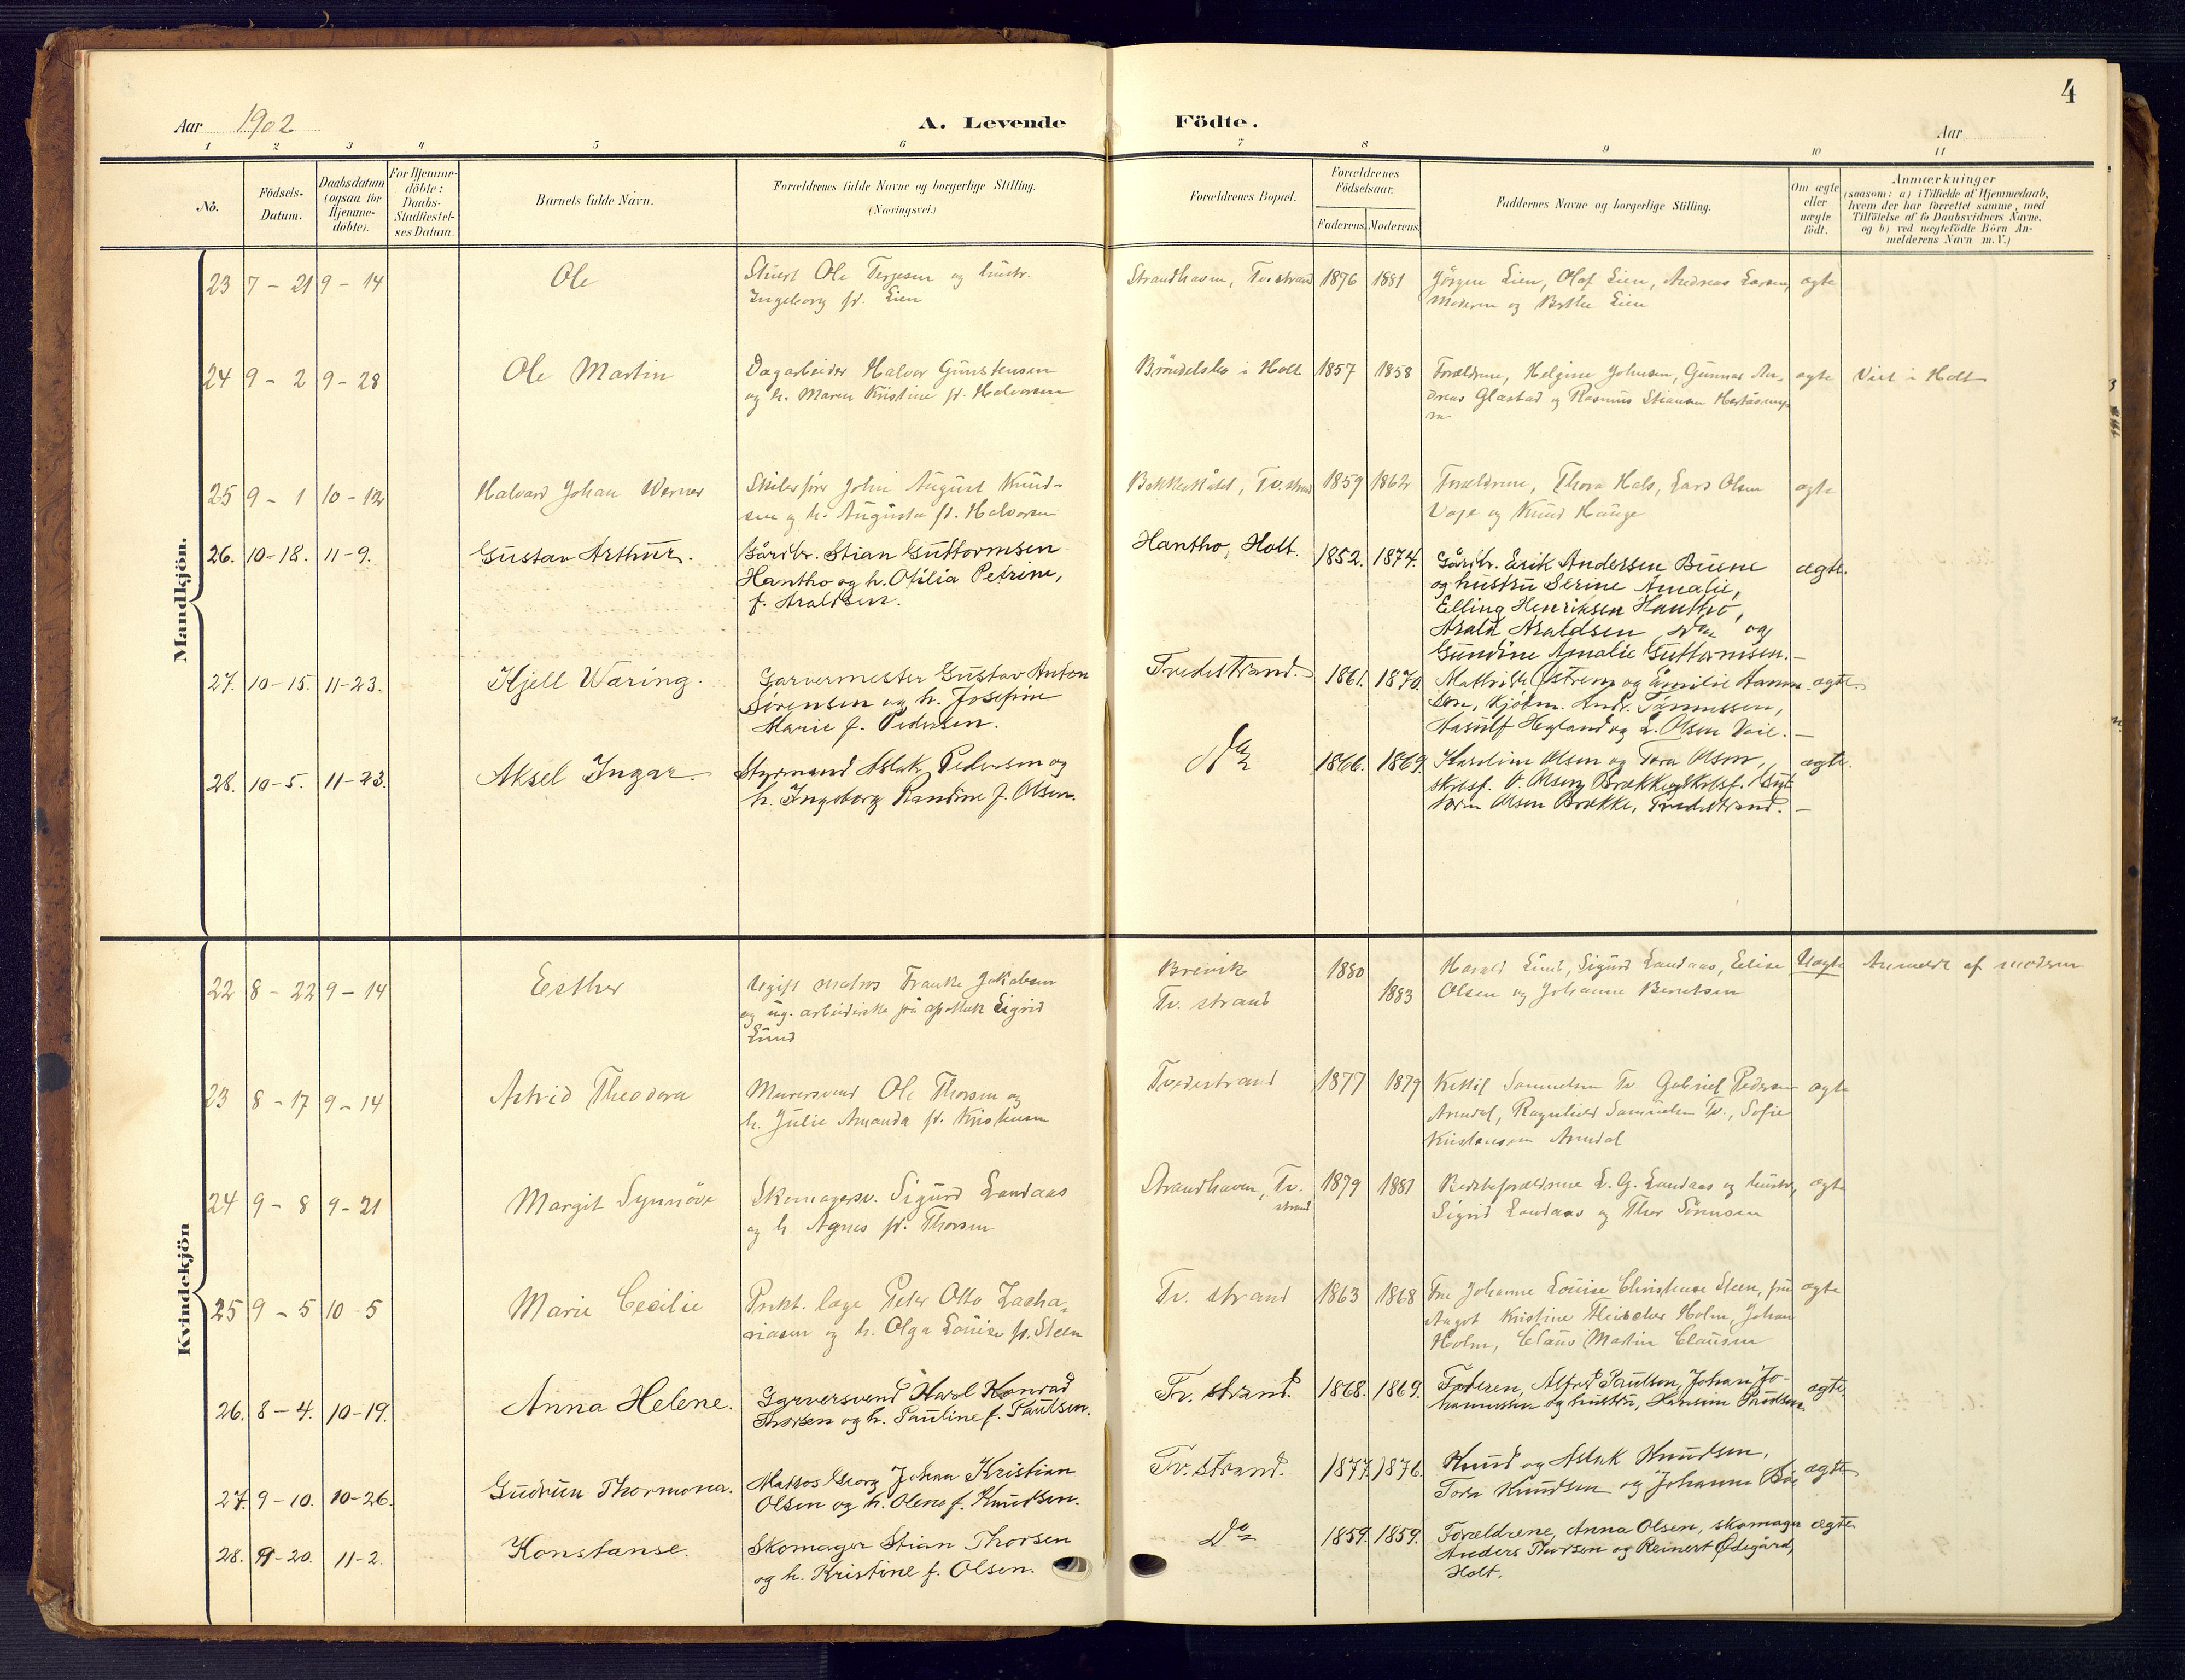 4
Aar 1902
A. Levende Födte.
Aar
1 2 3 4 5 6 7 8 9 10 11
No.
Födsels-
Datum.
Daabsdatum
(ogsaa for
Hjemme-
döbte).
For Hjemme-
döbte:
Daabs-
Stadfæstel-
ses Datum.
Barnets fulde Navn.
Forældrenes fulde Navne og borgerlige Stilling.
(Næringsvei.)
Forældrenes Bopæl.
Forældrenes
Födselsaar.
Faderens. Moderens.
Faddernes Navne og borgerlige Stilling.
Om ægte
eller
uægte
født.
Anmærkninger
(saasom: a) i Tilfælde af Hjemmedaab,
hvem der har forrettet samme, med
Tilføielse af to Daabsvidners Navne,
og b) ved uægtefödte Börn An-
melderens Navn m. V.)
Mandkjön.
23 7 - 21 9 - 14 Ole
Stuert Ole Terjesen og hustr.
Ingeborg f. Lien
Strandhaven, Tvedstrand 1876 1881
Jörgen Lien, Olaf Lien, Andreas Larsen,
Moderen og Berthe Lien
ægte
24 9 - 2 9 - 28 Ole Martin
Dagarbeider Halvor Gunstensen
og h. Maren Kristine f. Halvorsen
i Holt 1857 1858
Forældrene, Helgine Johnsen, Gunnar An-
dreas Glastad og Rasmus Stiansen
ægte
Viet i Holt
25 9 - 1 10 - 12 Halvard Johan Werner
Skibsfører John August Knud-
sen og h. Augusta f. Halvorsen
Tv.strand 1859 1862
Forældrene, Thora Hals, Lars Olsen
Voje og Knud Hauge
ægte
26. 10-18. 11-9. Gustav Arthur.
Gårdbr. Stian Guttormsen
Hantho og h. Otilia Petrine,
f. Araldsen.
Hantho, Holt. 1852. 1874.
Gårdbr. Erik Andersen Buene
og hustru Serine Amalie,
Elling Henriksen Hantho,
Arald Araldsen og
Gundine Amalie Guttormsen.-
ægte.
27. 10-15. 11-23. Kjell Waring.
Garvermester Gustav Anton
Sørensen og h. Josefine
Marie f. Pedersen.
Tvedestrand. 1861. 1870.
Mathilde Østrem og Emilie
Kjøbm. Andr. Tønnessen,
Aasulf Hegland og L. Olsen Voie.-
ægte.
28. 10-5. 11-23. Aksel Ingar.
Styrmand Aslak Pedersen og
h. Ingeborg Randine f. Olsen.
Do 1866. 1869.
Karoline Olsen og Tora Olsen,
skibsf. O. Olsen Brække og skibsf.
Olsen Brække, Tvedestrand.-
ægte.
Kvindekjön
22 8 - 22 9 - 14 Esther
Ugift matros Franke Jakobsen
og ug. arbeiderske på apothek Sigrid
Lund
Brevik 1880
Tv. strand 1883
Harald Lund, Sigurd Landaas, Elise
Olsen og Johanne Berntsen
Uægte
Anmeldt af moderen
23 8 - 17 9 - 14 Astrid Theodora
Murersvend Ole Thorsen og
h. Julie Amanda f. Kristensen
Tvedestrand 1877 1879
Kittil Samuelsen Tv. Gabriel Pedersen
Arendal, Ragnhild Samuelsen Tv., Sofie
Kristensen Arendal
ægte
24 9 - 8 9 - 21 Margit Synnöve
Skomagersv. Sigurd Landaas
og h. Agnes f. Thorsen
Strandhaven, Tv.
strand
1879 1881
Bedsteforældrene L. G. Landaas og hustru,
Sigrid Landaas og Thor Sörensen
ægte
25 9 - 5 10 - 5 Marie Cecilie
Prakt. læge Peter Otto Zacha-
riasen og h. Olga Louise f. Steen
Tv. strand 1863 1868
Fru Johanne Louise Christense Steen, fru
Aagot Kristine Fleischer Holm, Johan
Holm, Claus Martin Clausen
ægte
26. 8 - 4. 10-19. Anna Helene.
Garversvend Karl Konrad
Thorsen og h. Pauline f. Paulsen.
Tv. strand. 1868. 1869.
Faderen, Alfred Paulsen, Johan Jo-
hannessen og hustru, Hansine Paulsen.
ægte.
27. 9-10. 10-26. Gudrun Thormona.
Matros Georg Johan Kristian
Olsen og h. Olene f. Knudsen.
Tv. strand. 1877. 1876.
Knud og Aslak Knudsen,
Tora Knudsen og Johanne Bøe
ægte
28. 9-20. 11-2. Konstanse.
Skomager Stian Thorsen
og h. Kristine f. Olsen.
Do 1859. 1859.
Forældrene, Anna Olsen, skomager
Anders Thorsen og Reinert Ødegård,
Holt.
ægte